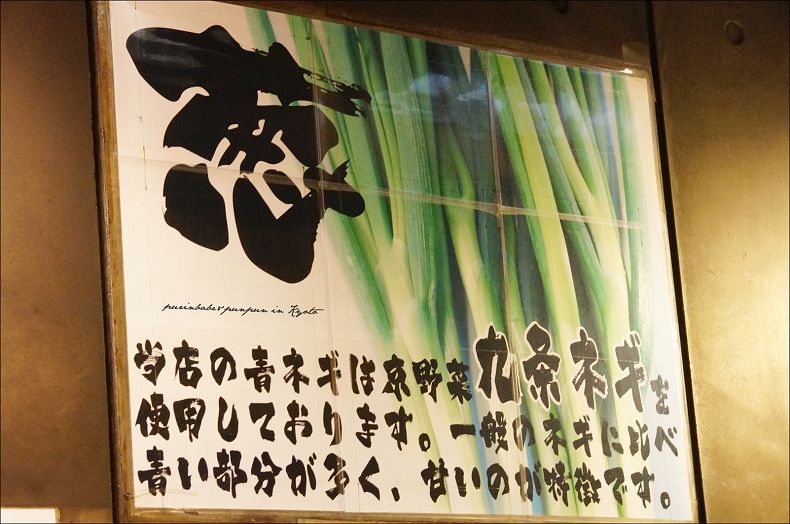 葱
purinbabe & punpun in Kyoto
当店の青ネギは京野菜九条ネギを
使用しております。一般のネギに比べ
青い部分が多く、甘いのが特徴です。